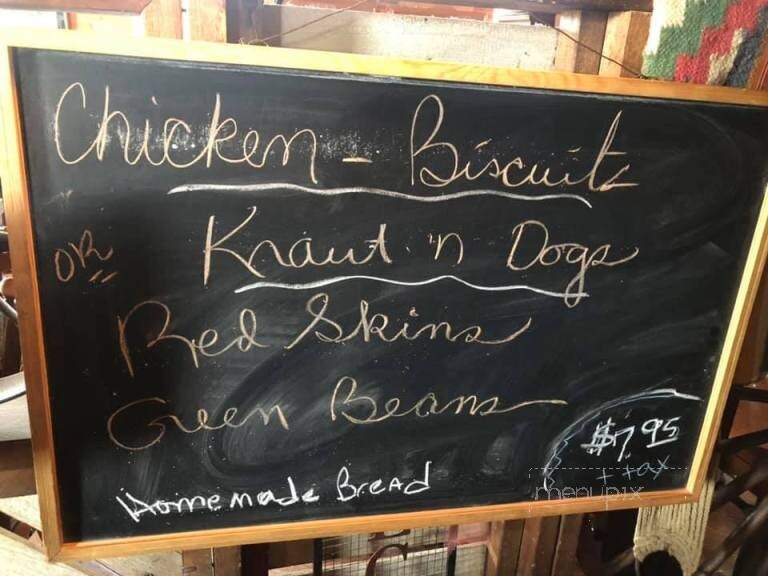 Chicken - Biscuits
OR Kraut 'n Dogs
Red Skins
Green Beans
Homemade Bread
$7.95
+ tax
menupix